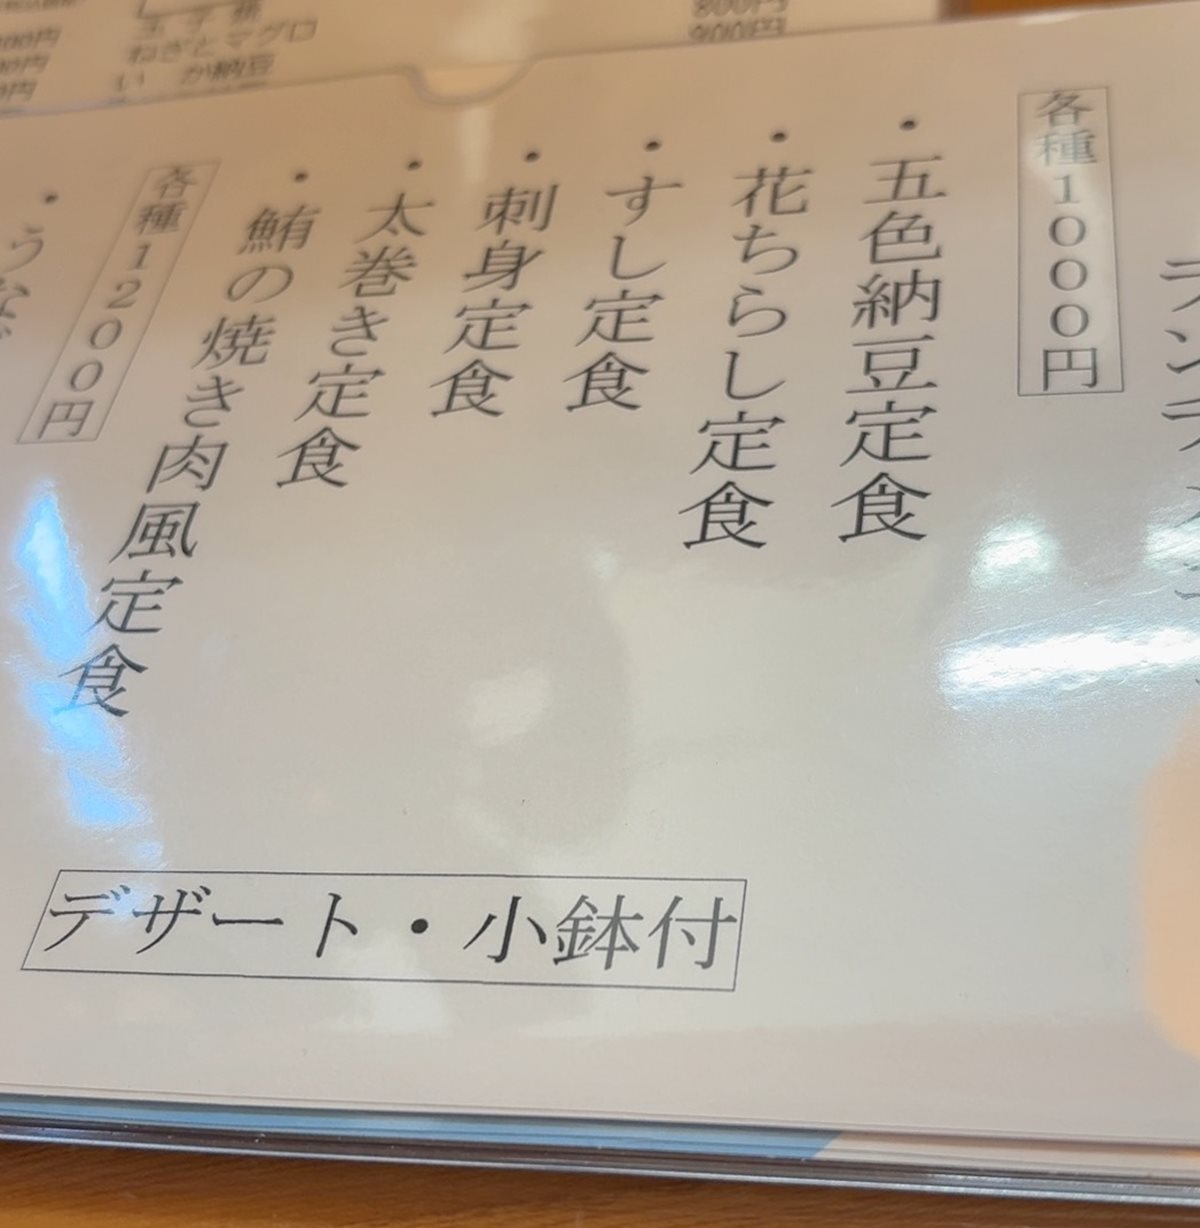 ねぎとマグロ
いか納豆
800円
900円
各種1000円
・五色納豆定食
・花ちらし定食
・すし定食
・刺身定食
・太巻き定食
・鮪の焼き肉風定食
各種1200円
デザート・小鉢付